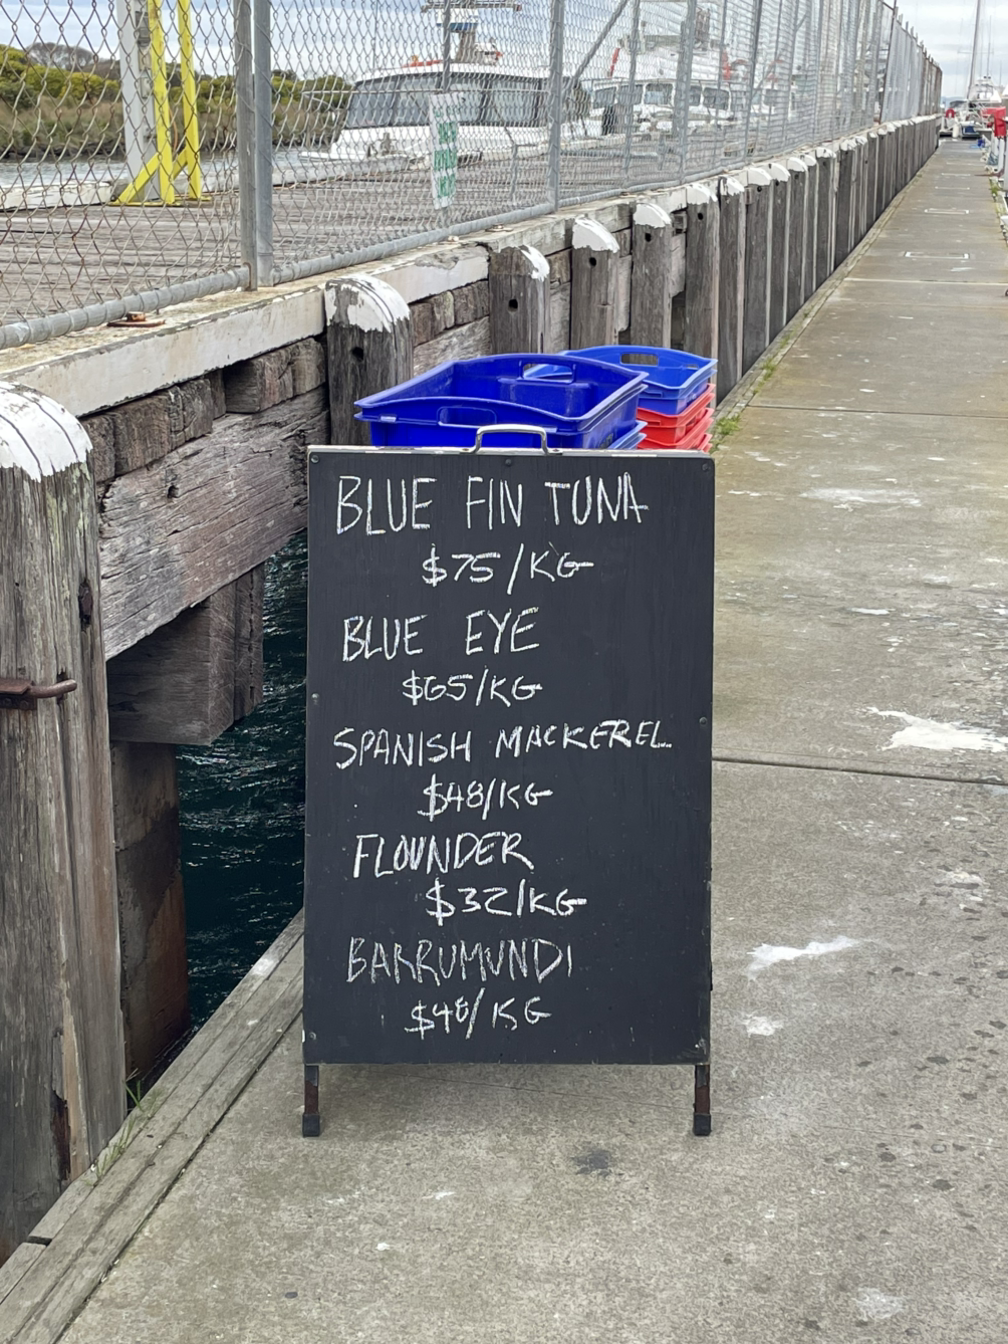 BLUE FIN TUNA
$75/KG
BLUE EYE
$65/KG
SPANISH MACKEREL
$48/KG
FLOUNDER
$32/KG
BARRUMUNDI
$48/KG